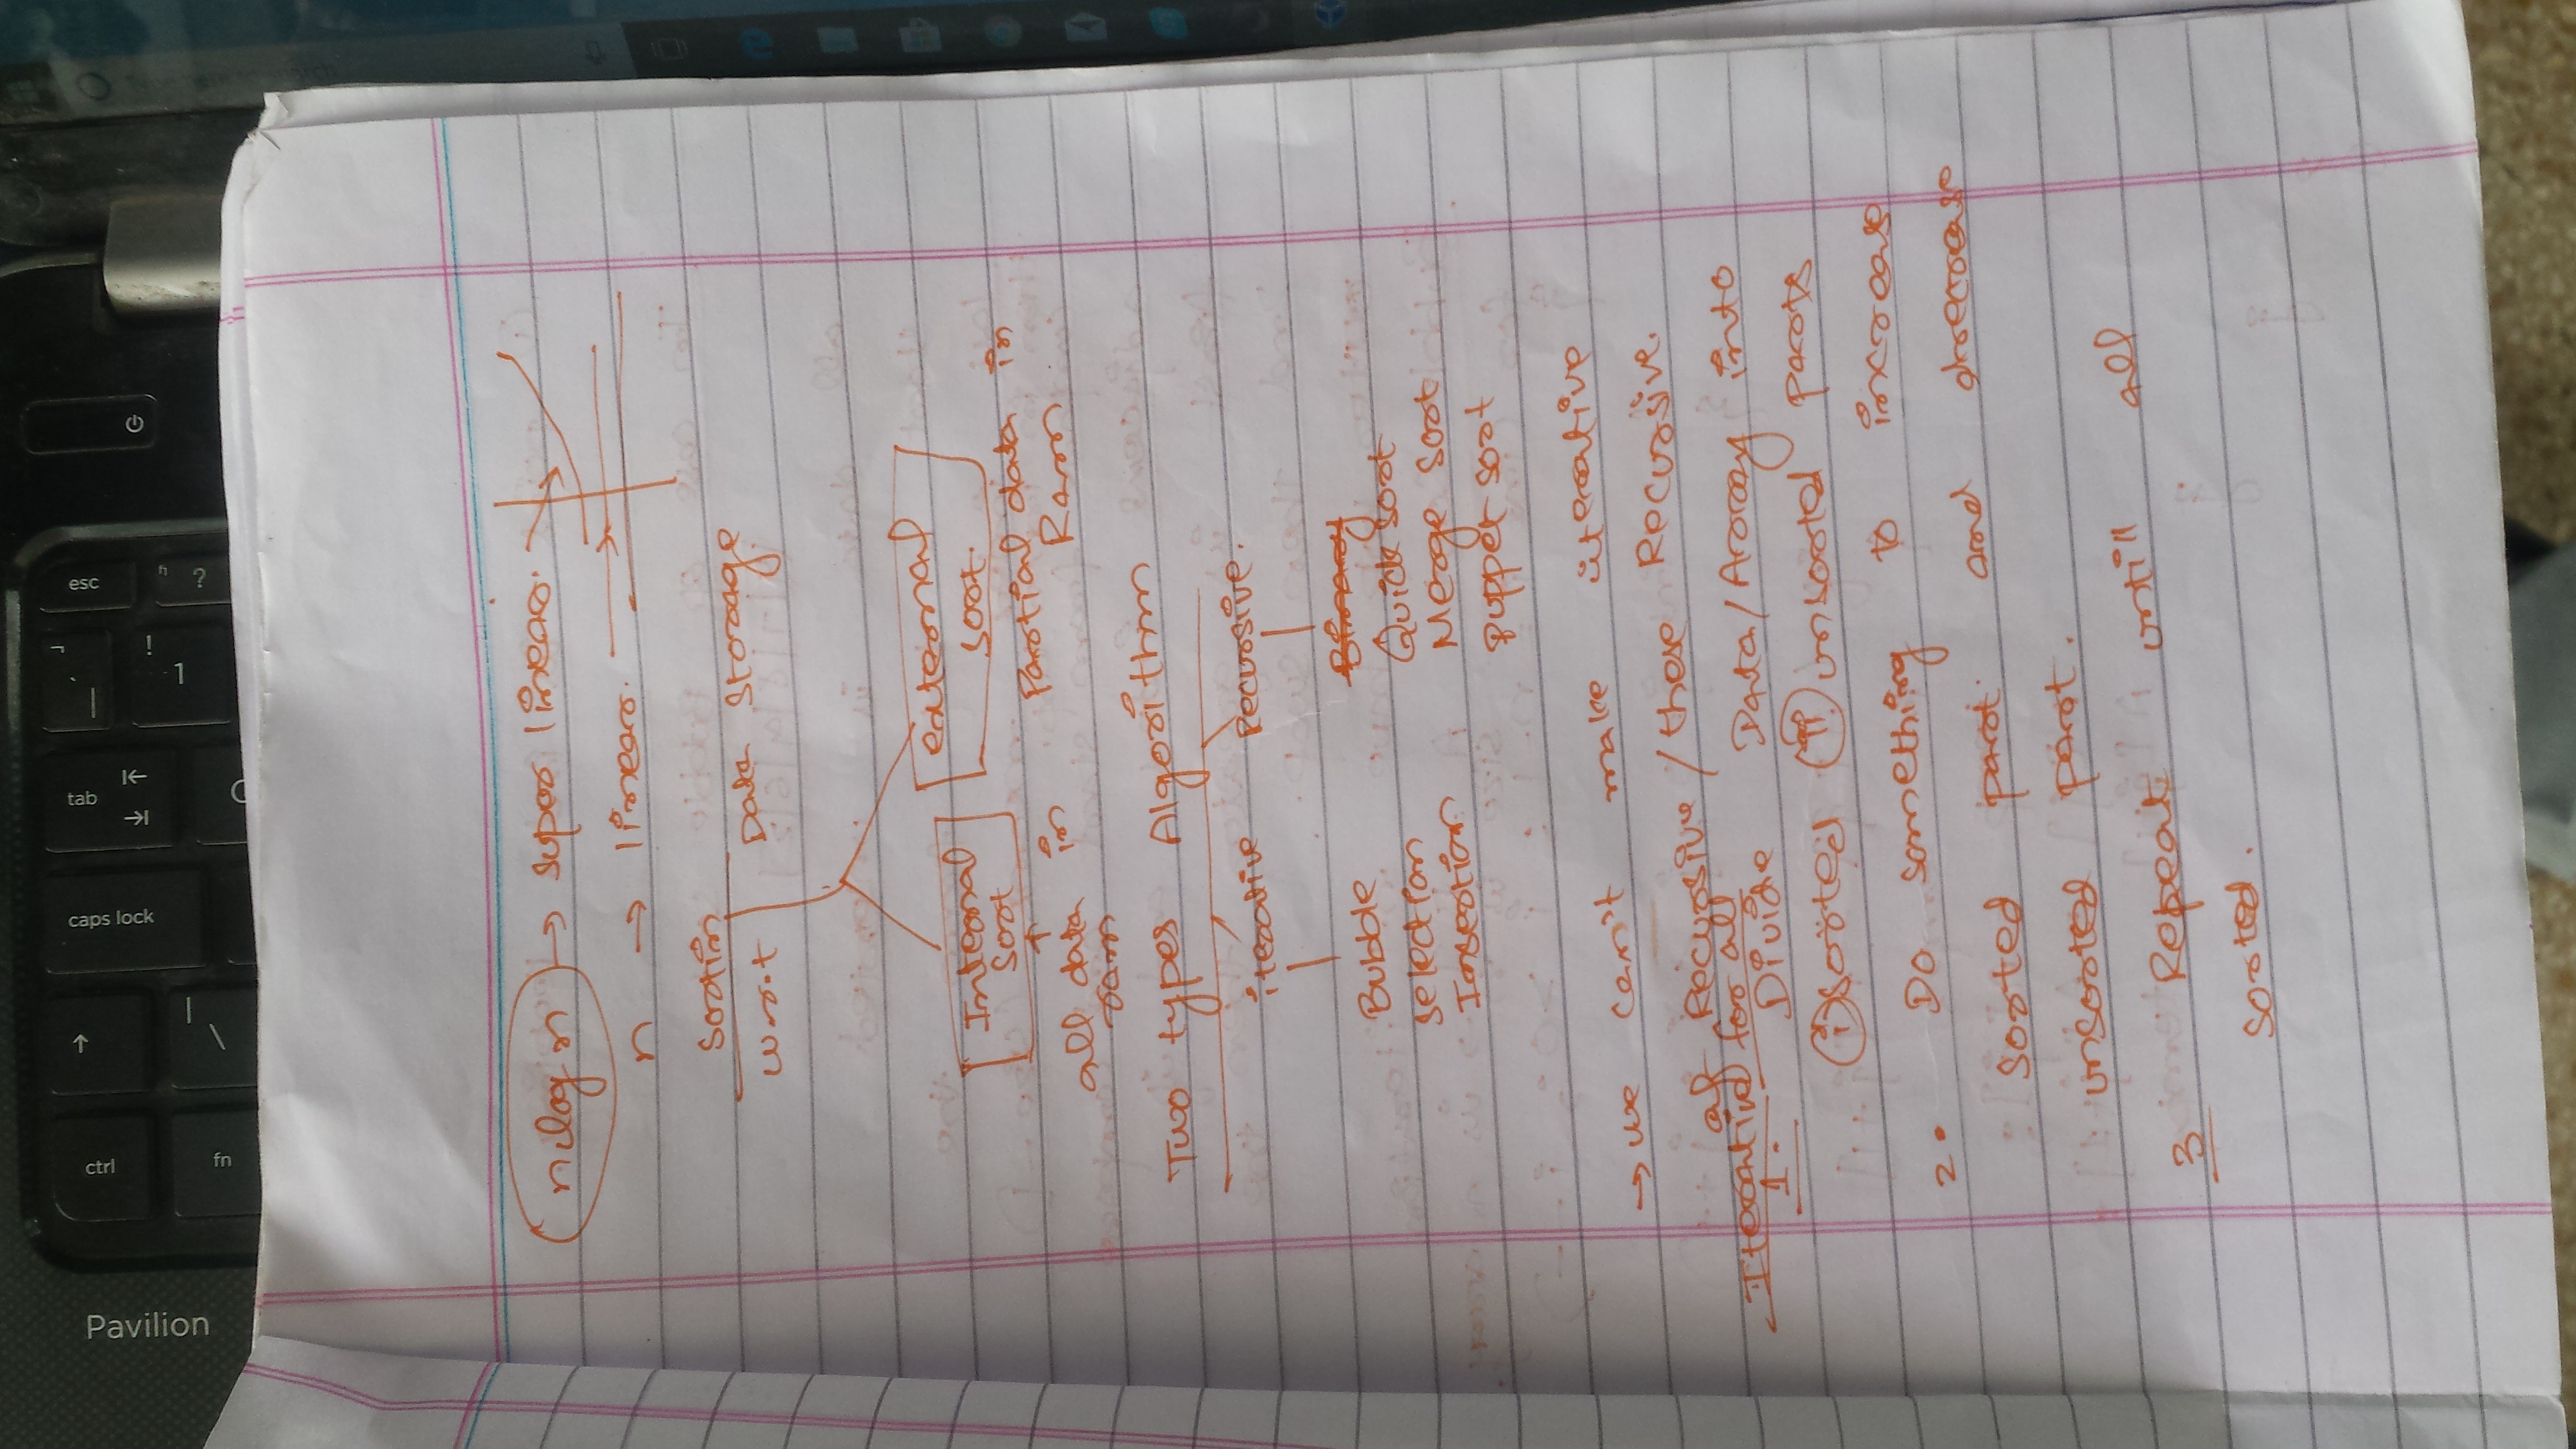 esc
tab
caps lock
ctrl
fn
! 1
Pavilion
nlogn → super linear.
n → linear.
Sortin
w.r.t Data Storage
Internal Sort
external sort.
all data in ram
Partial data in Ram
Two types Algorithm
iterative Recursive.
Bubble
selection
Insertion
Binary
Quick sort
Merge sort
puppet sort
→ we can't make iterative
of Recursive / these Recursive.
Iterative for all
1. Divide Data/Array into
(i) sorted (ii) unsorted parts
2. Do something to increase
sorted part and drecrease
unsorted part.
3 Repeat untill all
sorted.